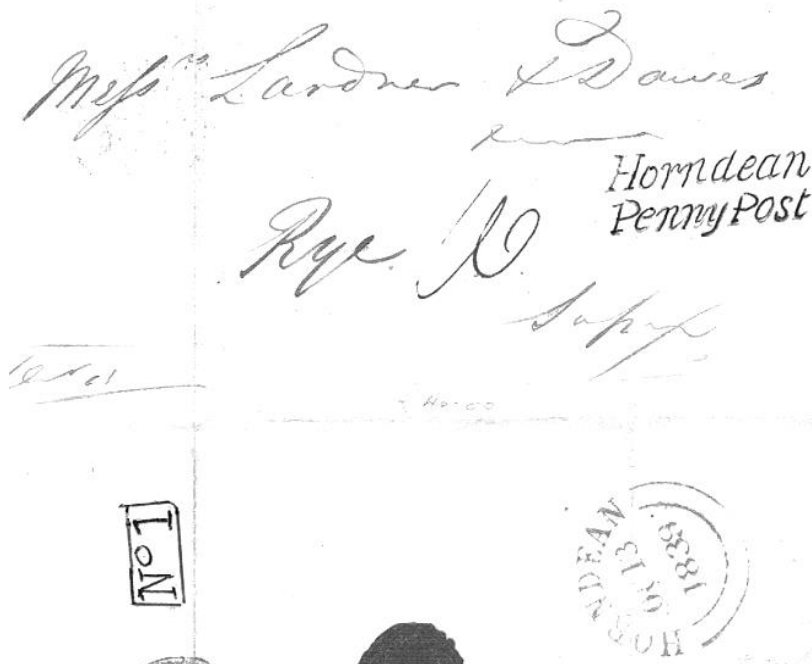 Messrs Lardner & Dawes
Horndean
Penny Post
Rye.
Sussex
No 1
HORNDEAN
OC 13
1838